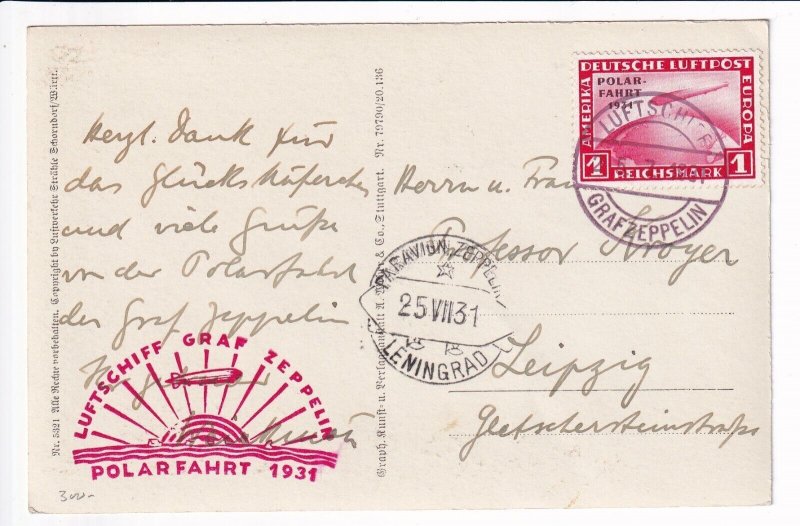 DEUTSCHE LUFTPOST
AMERIKA
EUROPA
POLAR-
FAHRT
1931
1 REICHSMARK 1
LUFTSCHIFF
GRAF ZEPPELIN
Nr. 5321 Alle Rechte vorbehalten. Copyright by Luftverkehr Strähle Schorndorf/Württ.
Graph. Kunst- u. Verlagsanstalt & Co., Stuttgart. Nr. 79790/20.136
Herzl. Dank für
das Glückskäferchen
und viele Grüße
von der Polarfahrt
des Graf Zeppelin
Herrn u. Frau
Professor Kroyer
Leipzig
Gletschersteinstraße
PAR AVION ZEPPELIN
25 VII 31
LENINGRAD
LUFTSCHIFF GRAF ZEPPELIN
POLARFAHRT 1931
300-